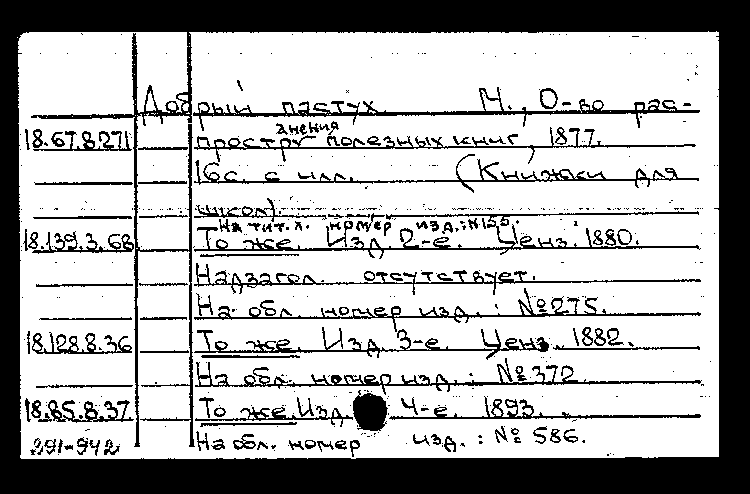 Добрый пастух. М., О-во рас-
18.67.8.271 простр анения полезных книг, 1877.
16с. с илл. (Книжки для
школ).
На тит. л. номер изд.: №155.
18.139.3.68 То же. Изд. 2-е. Ценз. 1880.
Надзагол. отсутствует.
На обл. номер изд.: №275.
18.128.8.36 То же. Изд. 3-е. Ценз. 1882.
На обл. номер изд.: №372
18.85.8.37 То же. Изд. 4-е. 1893.
291-942 На обл. номер изд.: № 586.